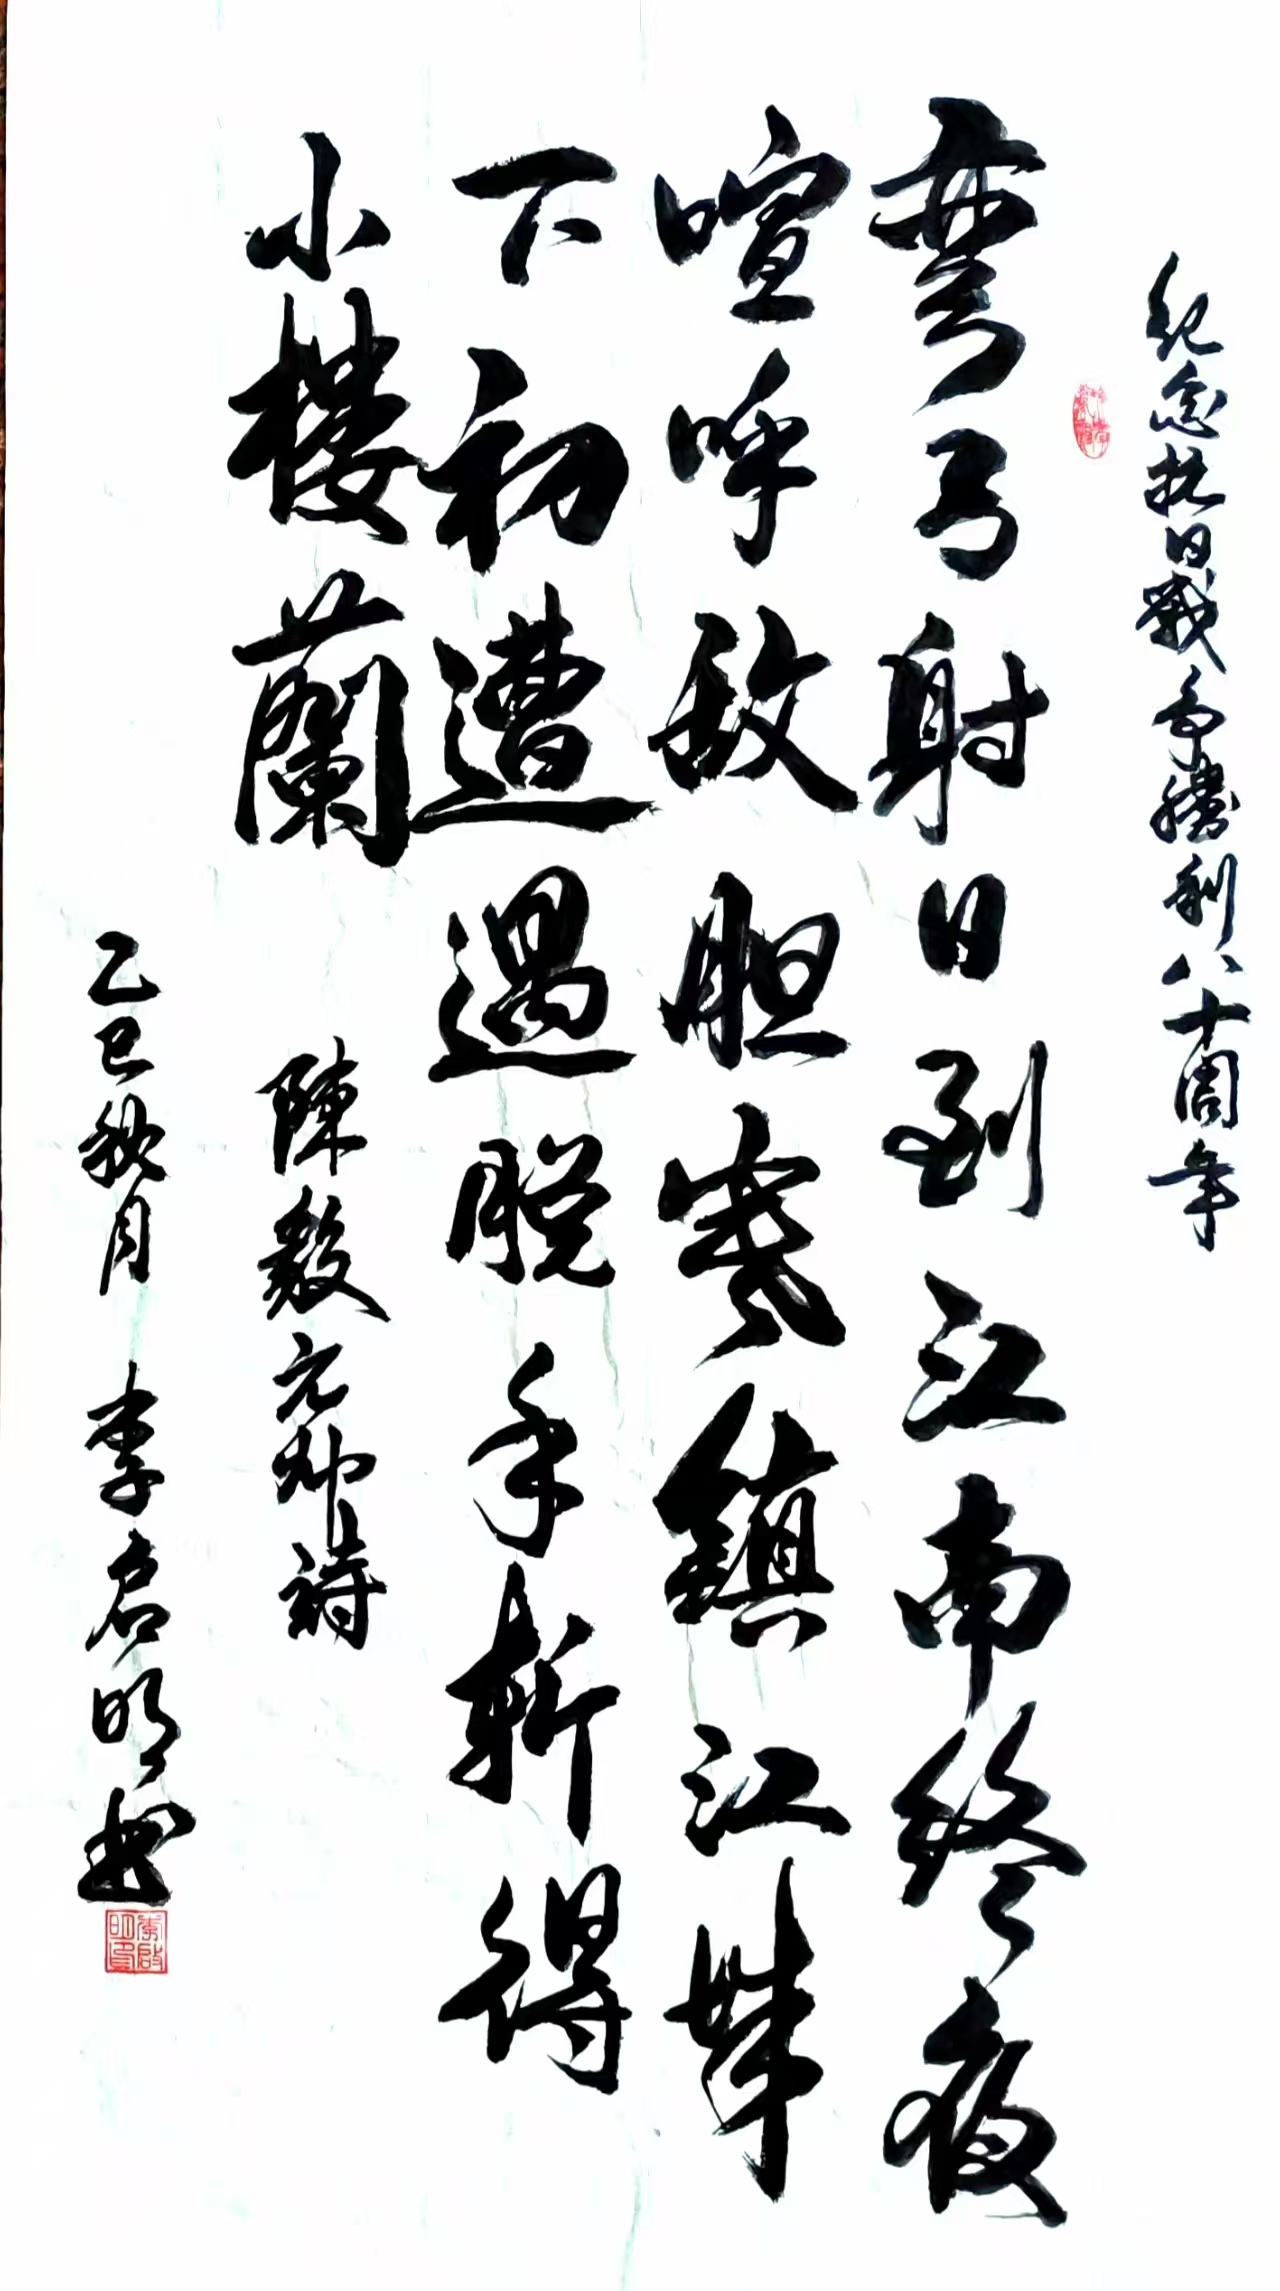 纪念抗日战争胜利八十周年
弯弓射日到江南终夜
喧呼敌胆寒镇江城
下初遭遇脱手斩得
小楼蘭
陳毅元帅詩
乙巳秋月 李启明书